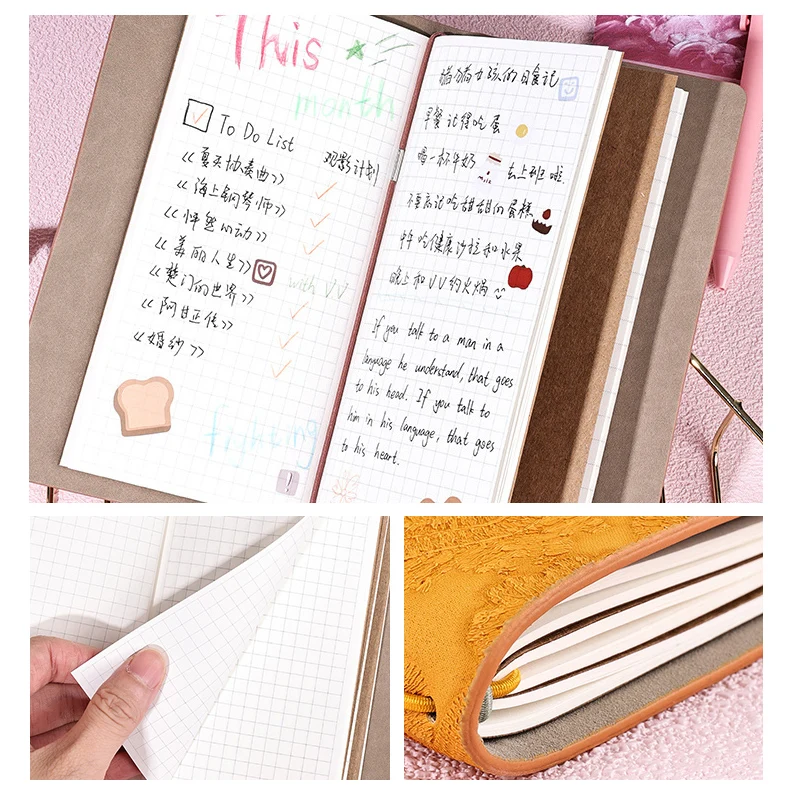 This
month
To Do List
观影计划
《夏天协奏曲》
《海上钢琴师》
《怦然心动》
《美丽人生》
with VV
《楚门的世界》
《阿甘正传》
《婚纱》
女孩的日食记
早餐记得吃蛋
喝一杯牛奶 去上班啦.
不要忘记吃甜甜的蛋糕
中午吃健康沙拉和水果
晚上和VV约火锅
If you talk to a man in a
language he understand, that goes
to his head. If you talk to
him in his language, that goes
to his heart.